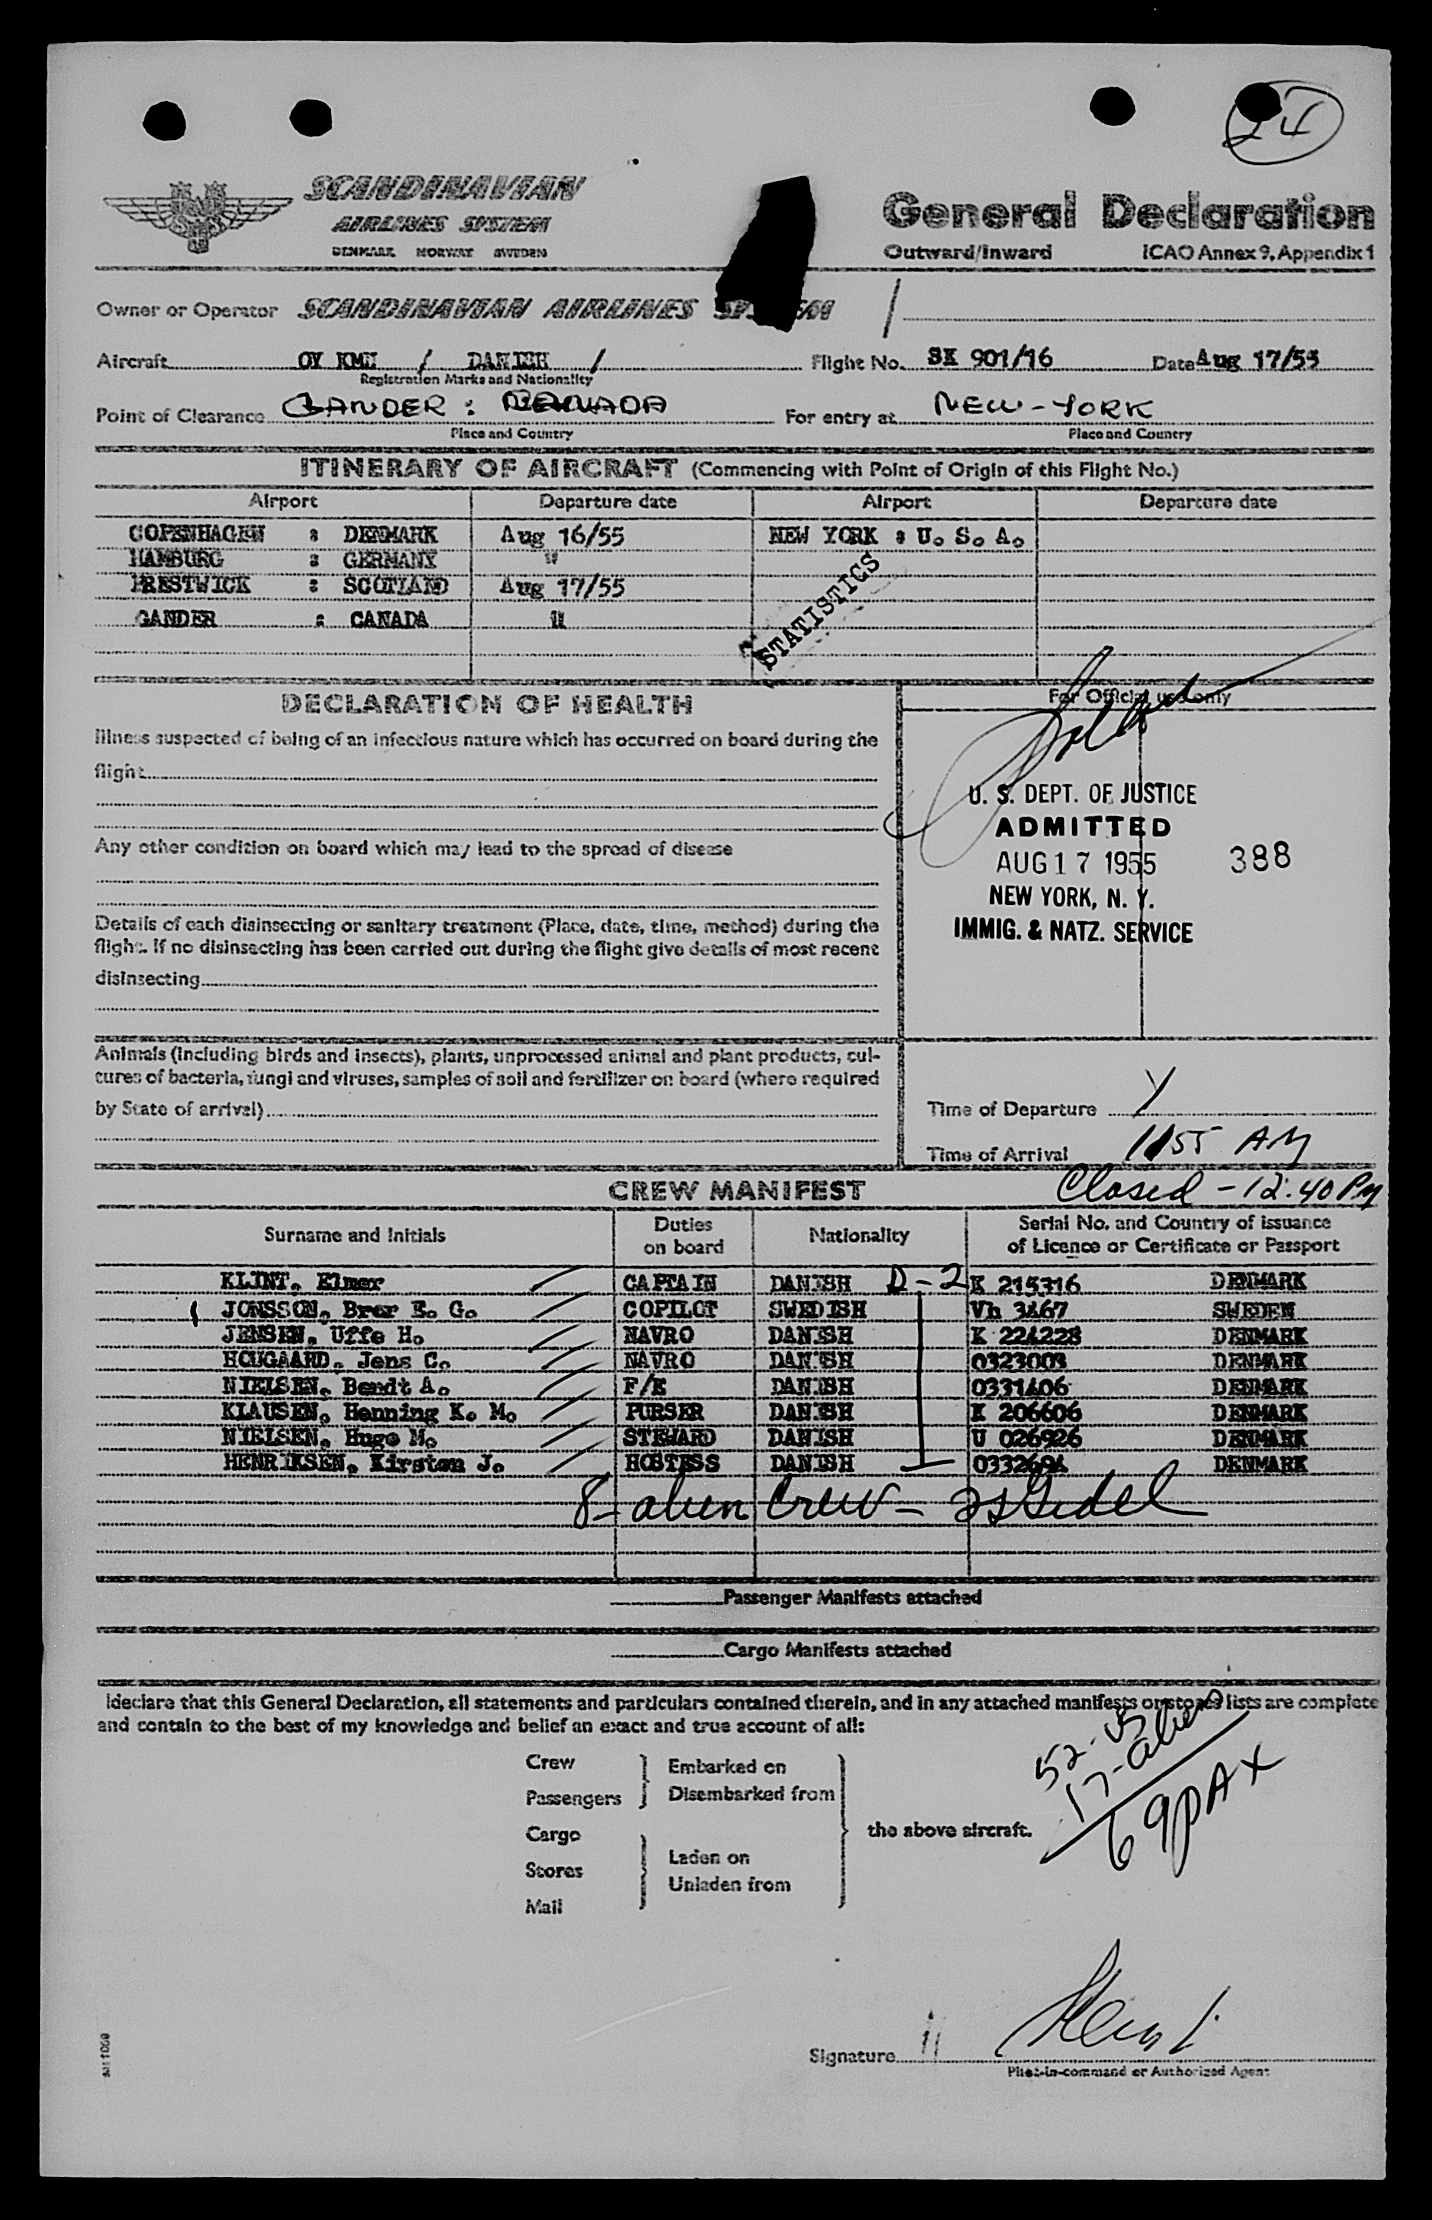 24
SCANDINAVIAN
AIRLINES SYSTEM
DENMARK NORWAY SWEDEN
General Declaration
Outward/Inward ICAO Annex 9, Appendix 1
Owner or Operator SCANDINAVIAN AIRLINES SYSTEM
Aircraft OY KMI / DANISH / Flight No. SK 901/16 Date Aug 17/55
Registration Marks and Nationality
Point of Clearance GANDER : CANADA For entry at NEW-YORK
Place and Country Place and Country
ITINERARY OF AIRCRAFT (Commencing with Point of Origin of this Flight No.)
Airport Departure date Airport Departure date
COPENHAGEN : DENMARK Aug 16/55 NEW YORK : U. S. A.
HAMBURG : GERMANY "
PRESTWICK : SCOTLAND Aug 17/55
GANDER : CANADA "
STATISTICS
DECLARATION OF HEALTH
For Official use only
Illness suspected of being of an infectious nature which has occurred on board during the
flight
Any other condition on board which may lead to the spread of disease
Details of each disinsecting or sanitary treatment (Place, date, time, method) during the
flight. If no disinsecting has been carried out during the flight give details of most recent
disinsecting
U. S. DEPT. OF JUSTICE
ADMITTED
AUG 17 1955 388
NEW YORK, N. Y.
IMMIG. & NATZ. SERVICE
Animals (including birds and insects), plants, unprocessed animal and plant products, cul-
tures of bacteria, fungi and viruses, samples of soil and fertilizer on board (where required
by State of arrival)
Time of Departure
Time of Arrival 1155 AM
Closed - 12.40 PM
CREW MANIFEST
Surname and Initials Duties on board Nationality Serial No. and Country of issuance of Licence or Certificate or Passport
KLINT, Elmer CAPTAIN DANISH D-2 K 215316 DENMARK
JONSSON, Bror E. G. COPILOT SWEDISH Vh 3467 SWEDEN
JENSEN, Uffe H. NAVRO DANISH K 224228 DENMARK
HOUGAARD, Jens C. NAVRO DANISH 0323003 DENMARK
NIELSEN, Bendt A. F/E DANISH 0331406 DENMARK
KLAUSEN, Henning K. M. PURSER DANISH K 206606 DENMARK
NIELSEN, Hugo M. STEWARD DANISH U 026926 DENMARK
HENRIKSEN, Kirsten J. HOSTESS DANISH 0332694 DENMARK
8 - alien Crew -
Passenger Manifests attached
Cargo Manifests attached
I declare that this General Declaration, all statements and particulars contained therein, and in any attached manifests or stores lists are complete
and contain to the best of my knowledge and belief an exact and true account of all:
52-US
17-alien
69 PAX
Crew Embarked on
Passengers Disembarked from
Cargo the above aircraft.
Stores Laden on
Mail Unladen from
Signature
Pilot-in-command or Authorized Agent